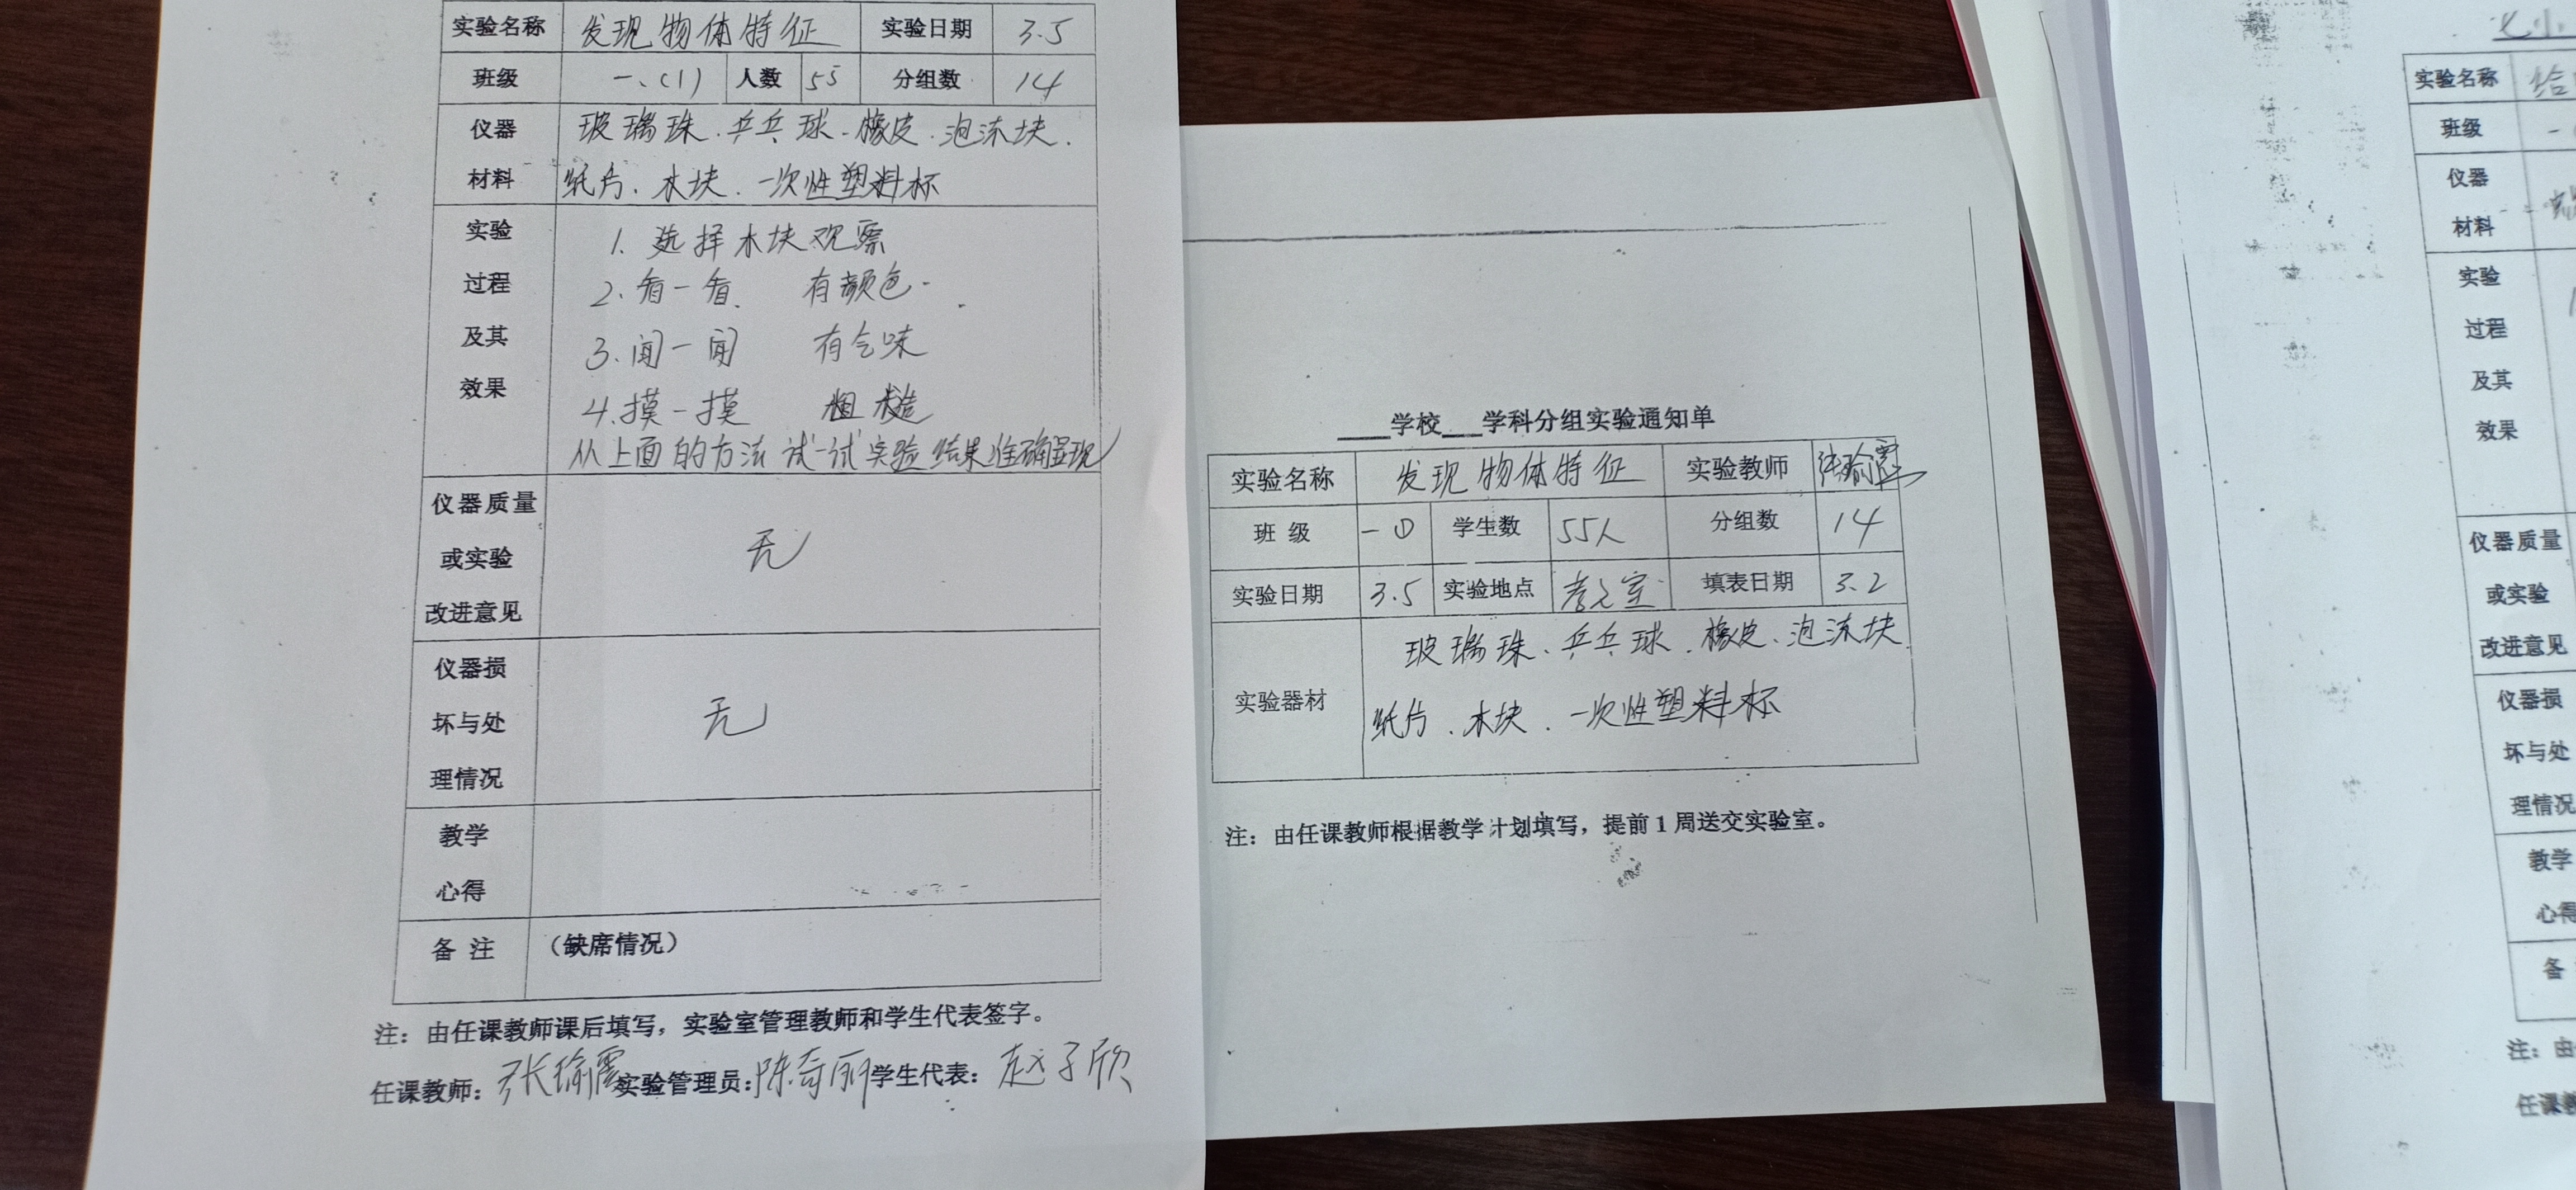 实验名称 发现物体特征 实验日期 3.5
班级 一.(1) 人数 55 分组数 14
仪器 玻璃珠.乒乓球.橡皮.泡沫块.
材料 纸片.木块.一次性塑料杯
实验 1.选择木块观察
过程 2.看一看. 有颜色.
及其 3.闻一闻 有气味
效果 4.摸一摸 粗糙
从上面的方法试一试实验结果准确呈现
仪器质量
或实验 无
改进意见
仪器损
坏与处 无
理情况
教学
心得
备 注 （缺席情况）
注：由任课教师课后填写，实验室管理教师和学生代表签字。
任课教师：张瑜霞 实验管理员：陈奇丽 学生代表：赵子欣
学校 学科分组实验通知单
实验名称 发现物体特征 实验教师 张瑜霞
班 级 一① 学生数 55人 分组数 14
实验日期 3.5 实验地点 室 填表日期 3.2
玻璃珠、乒乓球.橡皮、泡沫块.
实验器材
纸片.木块.一次性塑料杯
注：由任课教师根据教学计划填写，提前1周送交实验室。
实验名称 给
班级
仪器
材料
实验
过程
及其
效果
仪器质量
或实验
改进意见
仪器损
坏与处
理情况
教学
心得
备
注：由
任课教